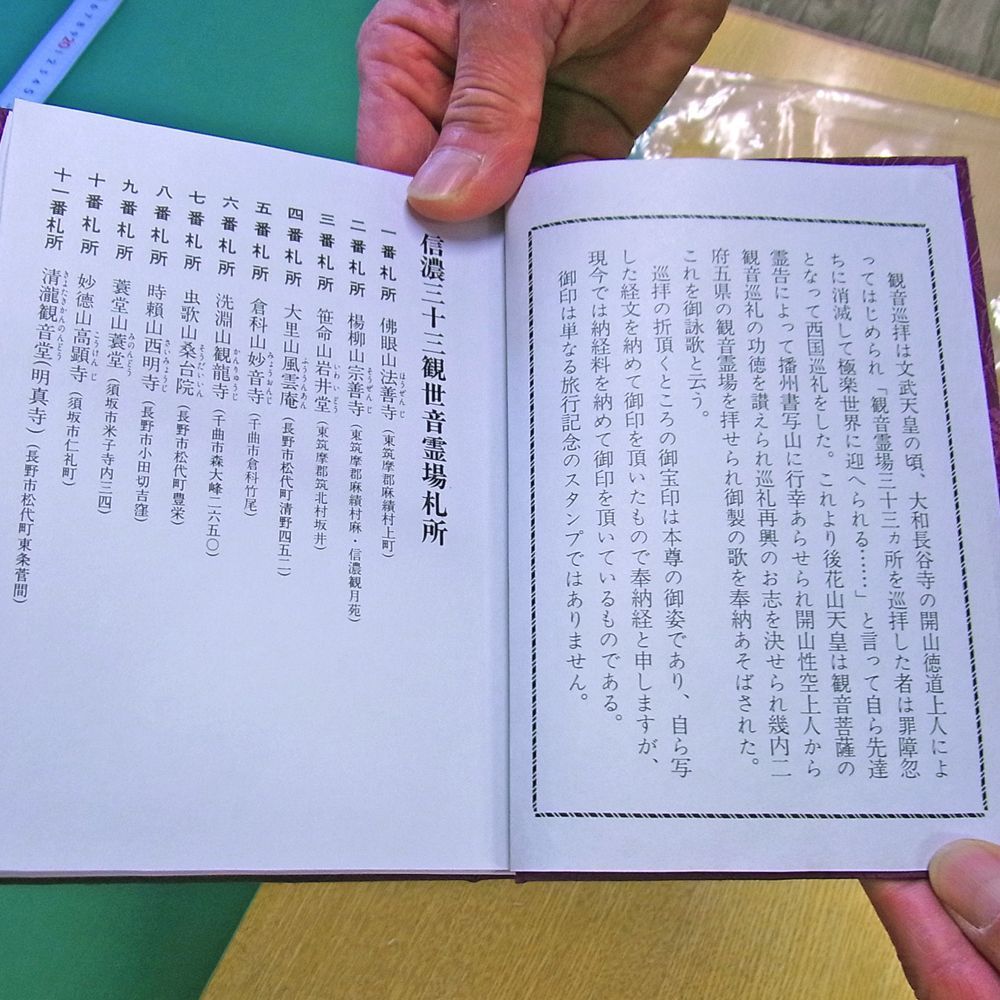 観音巡拝は文武天皇の頃、大和長谷寺の開山徳道上人によ
ってはじめられ「観音霊場三十三ヵ所を巡拝した者は罪障忽
ちに消滅して極楽世界に迎へられる……」と言って自ら先達
となって西国巡礼をした。これより後花山天皇は観音菩薩の
霊告によって播州書写山に行幸あらせられ開山性空上人から
観音巡礼の功徳を讃えられ巡礼再興のお志を決せられ幾内二
府五県の観音霊場を拝せられ御製の歌を奉納あそばされた。
これを御詠歌と云う。
巡拝の折頂くところの御宝印は本尊の御姿であり、自ら写
した経文を納めて御印を頂いたもので奉納経と申しますが、
現今では納経料を納めて御印を頂いているものである。
御印は単なる旅行記念のスタンプではありません。
信濃三十三観世音霊場札所
一番札所 佛眼山法善寺 ほうぜんじ (東筑摩郡麻績村上町)
二番札所 楊柳山宗善寺 そうぜんじ (東筑摩郡麻績村麻・信濃観月苑)
三番札所 笹命山岩井堂 いわいどう (東筑摩郡筑北村坂井)
四番札所 大里山風雲庵 ふううんあん (長野市松代町清野四五二)
五番札所 倉科山妙音寺 みょうおんじ (千曲市倉科竹尾)
六番札所 洗淵山観龍寺 かんりゅうじ (千曲市森大峰二六五〇)
七番札所 虫歌山桑台院 そうだいいん (長野市松代町豊栄)
八番札所 時頼山西明寺 さいみょうじ (長野市小田切吉窪)
九番札所 蓑堂山蓑堂 みのんどう (須坂市米子寺内三四)
十番札所 妙徳山高顕寺 こうけんじ (須坂市仁礼町)
十一番札所 清瀧観音堂(明真寺) きよたきかんのんどう (長野市松代町東条菅間)